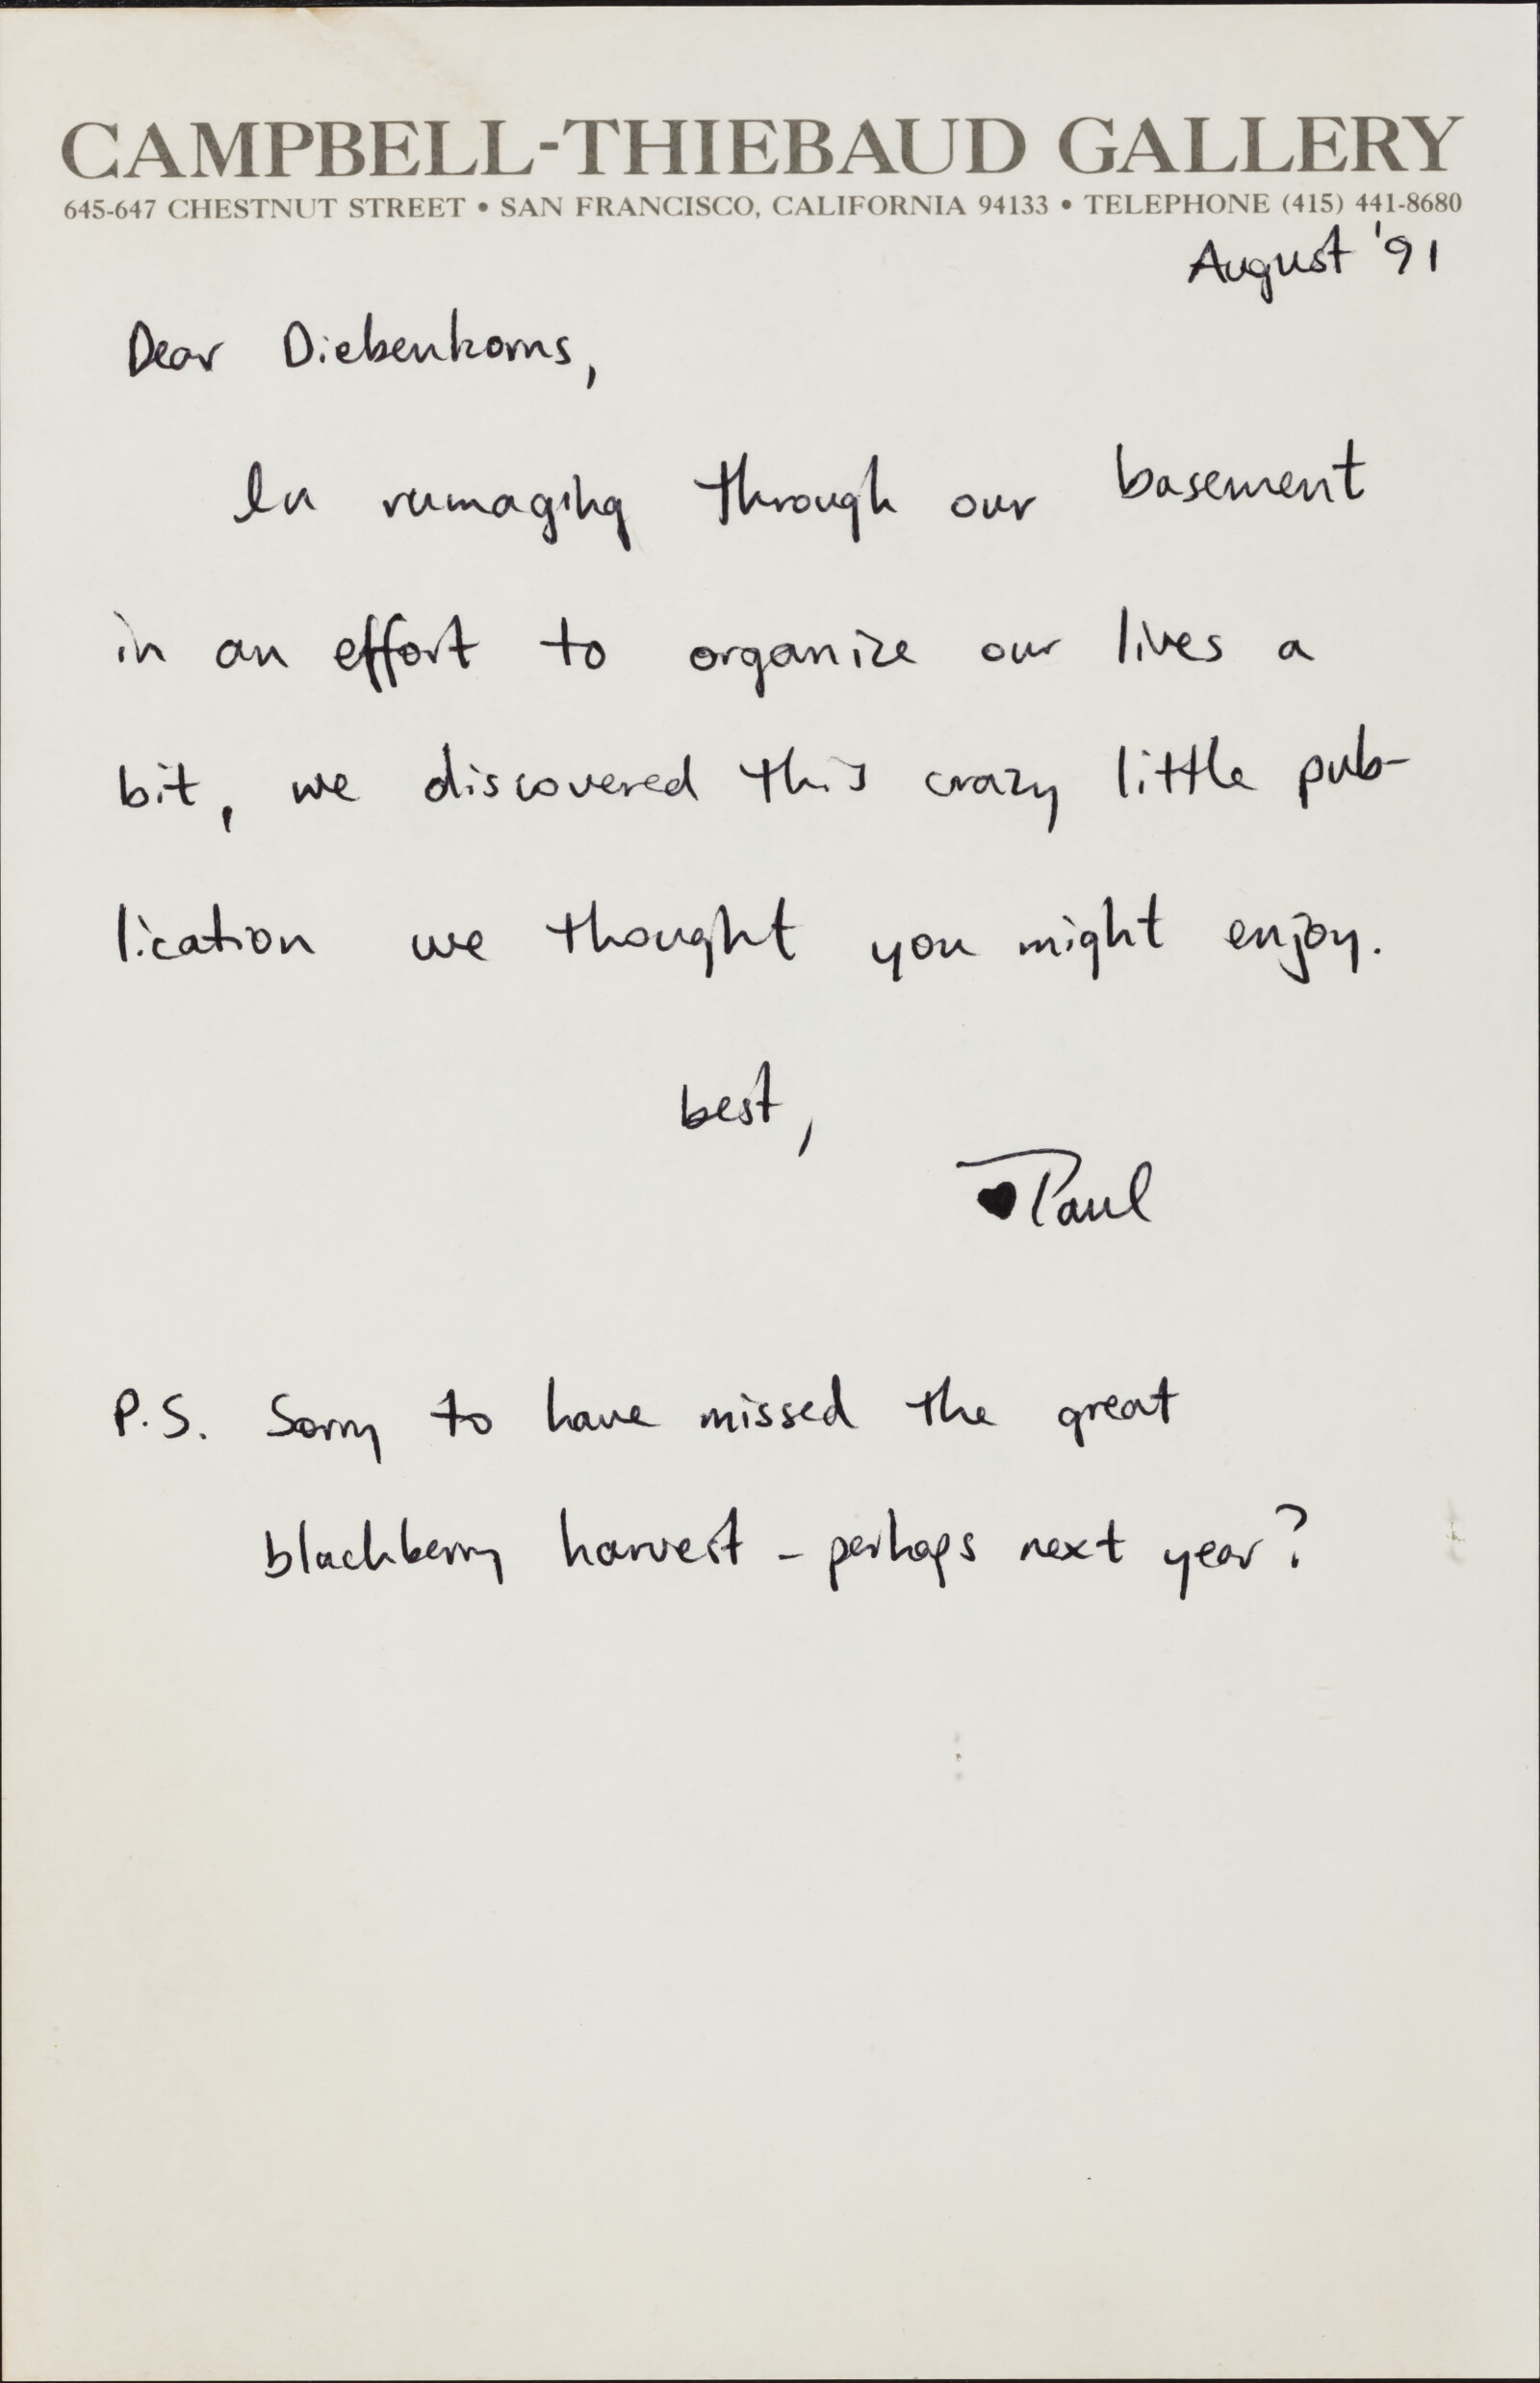 CAMPBELL-THIEBAUD GALLERY
645-647 CHESTNUT STREET • SAN FRANCISCO, CALIFORNIA 94133 • TELEPHONE (415) 441-8680
August '91
Dear Diebenkorns,
In rumaging through our basement
in an effort to organize our lives a
bit, we discovered this crazy little pub-
lication we thought you might enjoy.
best,
♥Paul
P.S. Sorry to have missed the great
blackberry harvest - perhaps next year?